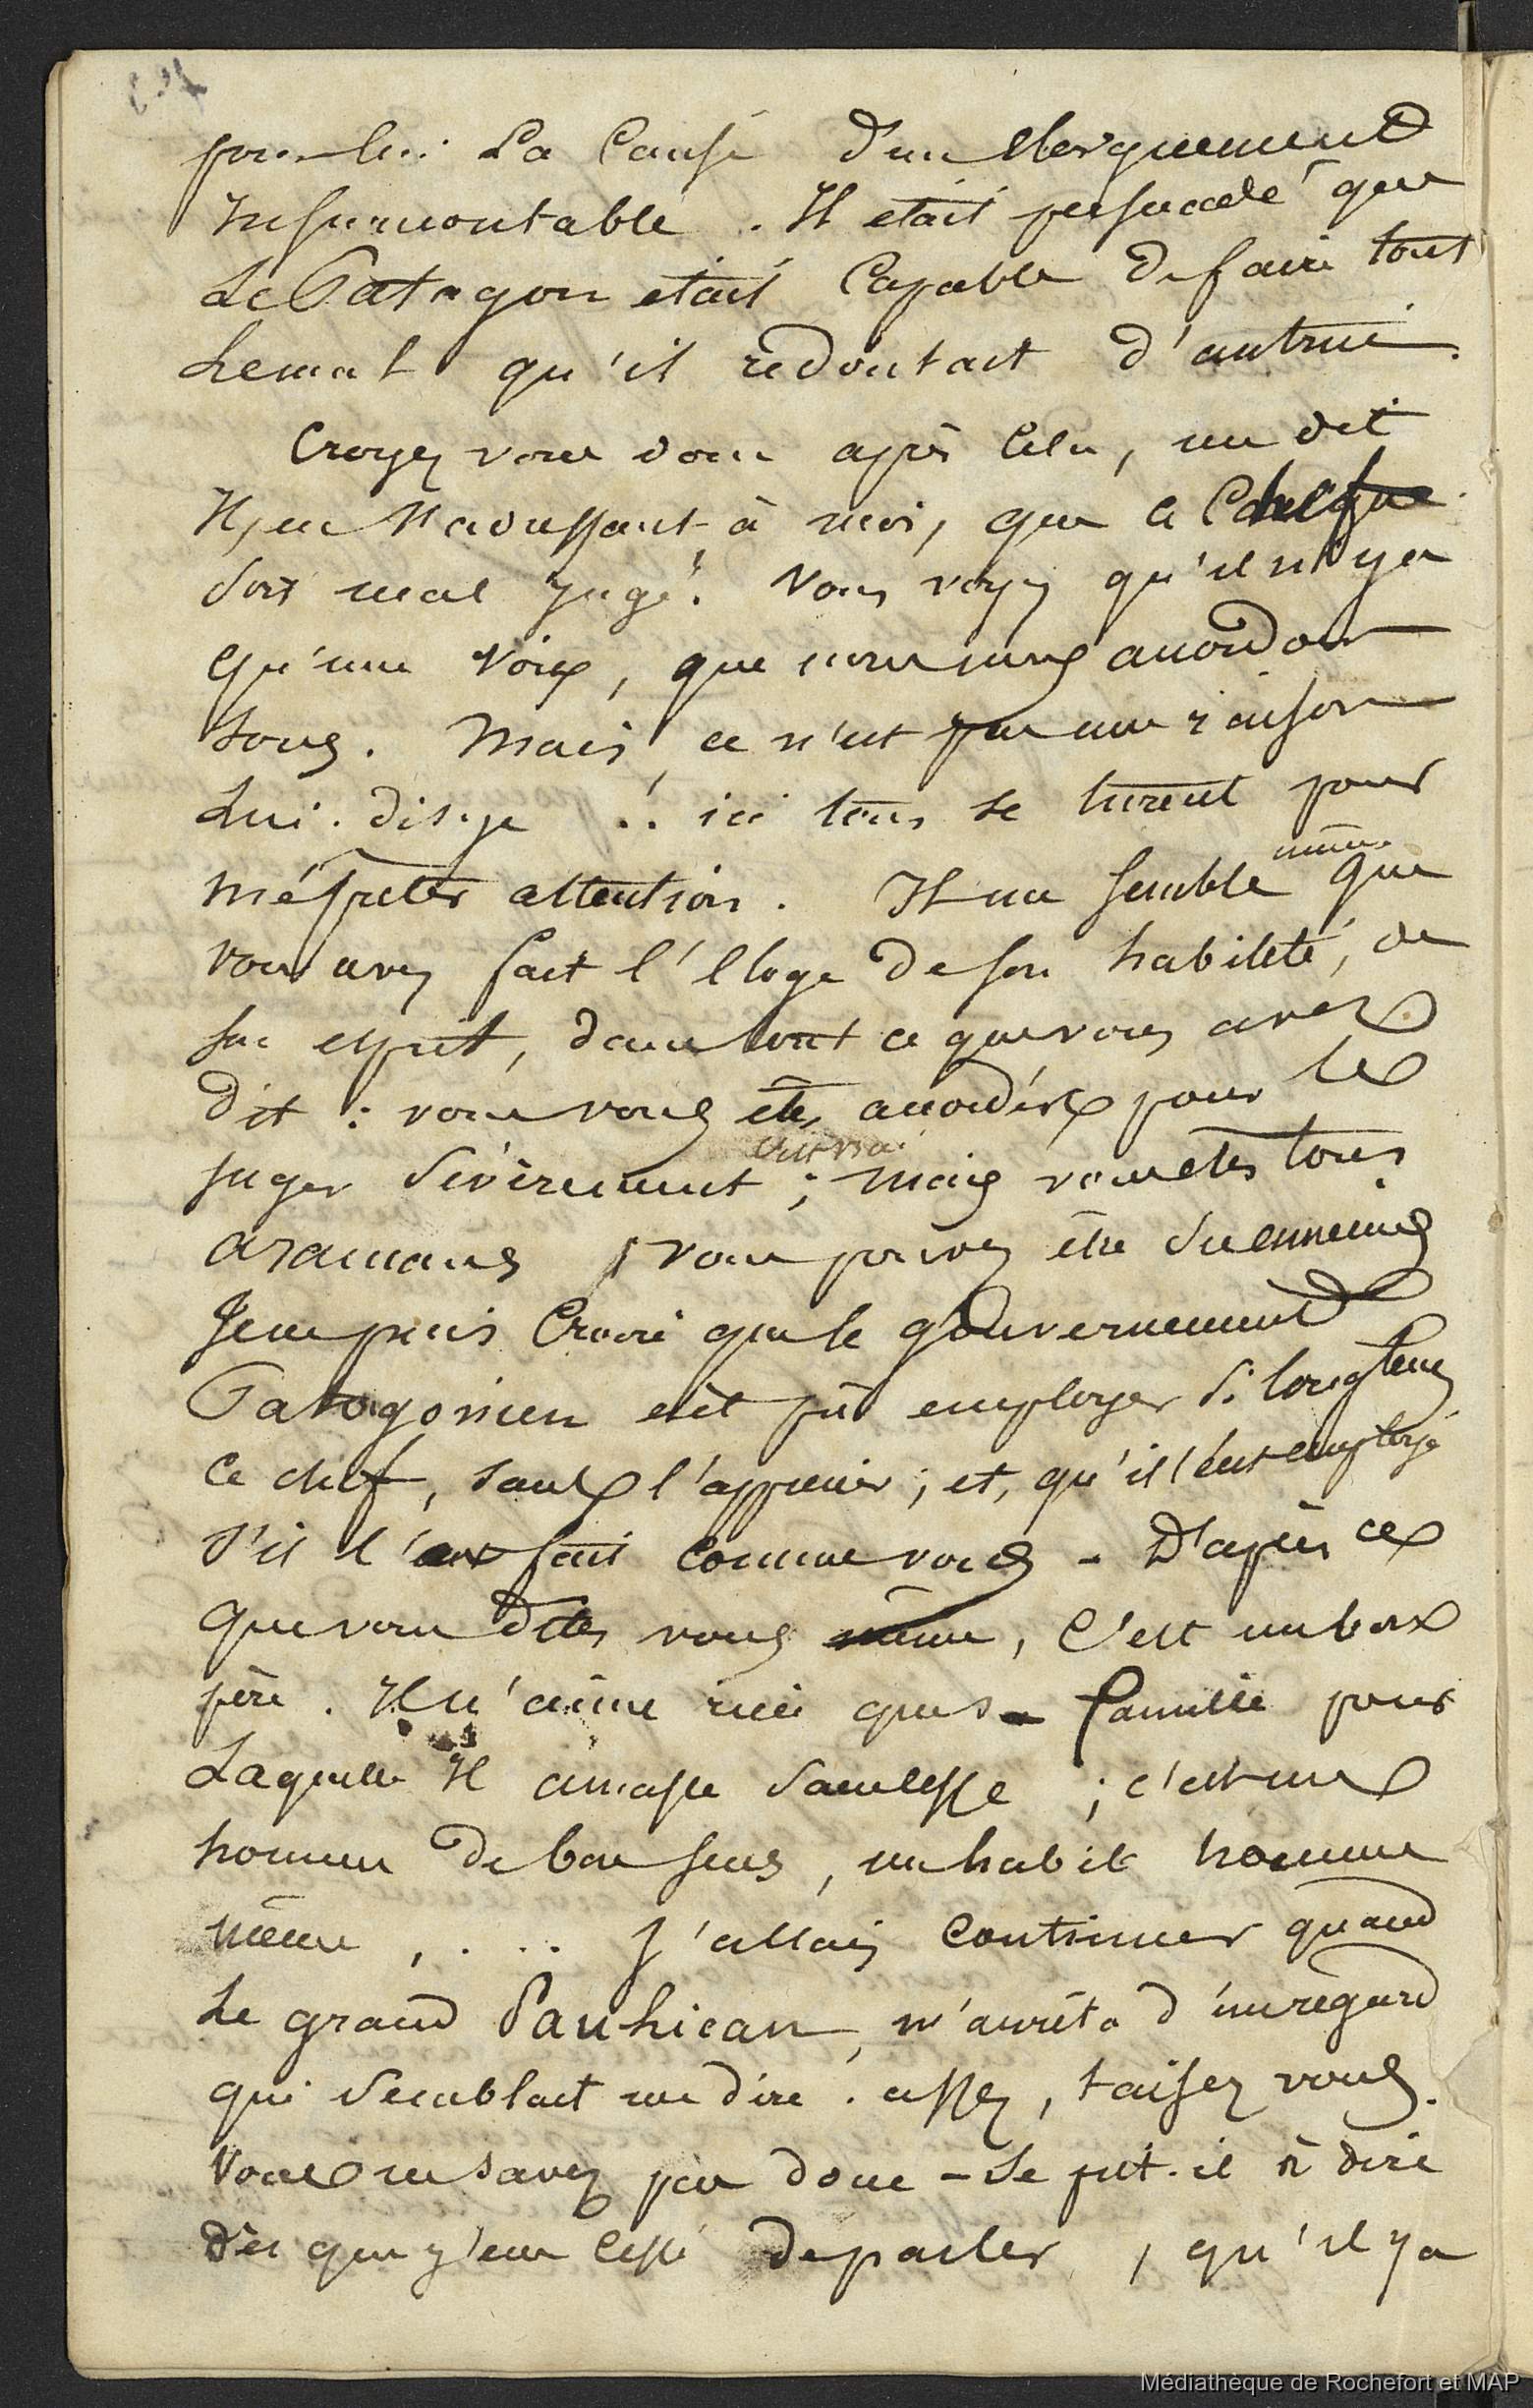 pour lui La Cause d'un Eloignement
Insurmontable. Il était persuadé que
Le Patagon était Capable de faire tout
Le mal qu'il redoutait d'autrui.
Croyez vous donc après Cela, me dit
Il, en s'adressant à moi, que ce Chef
soit mal Jugé? Vous voyez qu'il n'y a
qu'une Voix, que nous nous accordons
tous. Mais, ce n'est pas une raison
Lui dis-je .. ici tous se turent pour
mé prêter attention. Il me semble même que
vous avez fait l'Eloge de son habileté, de
son esprit, dans tout ce que vous avez
dit : vous vous êtes accordés pour le
juger sévèrement ; C'est vrai mais vous êtes tous
aramans, vous pouvez être ses ennemis
Je ne puis Croire que le gouvernement
Patagonien eût pû employer si longtems
Ce chef, sans l'apprécier ; et, qu'il l'eut employé
s'il l'eut fait Comme vous - D'après ce
que vous dites vous même, C'est un bon
père. Il n'aime rien que sa famille pour
Laquelle Il amasse sans cesse ; c'est un
homme de bon sens, un habile homme
même, ... J'allais Continuer quand
Le grand Pauhican, m'arrêta d'un regard
qui semblait me dire. assez, taisez vous.
Vous ne savez pas donc - se prit-il à dire
dès que j'eus Cessé de parler, qu'il y a
Médiathèque de Rochefort et MAP